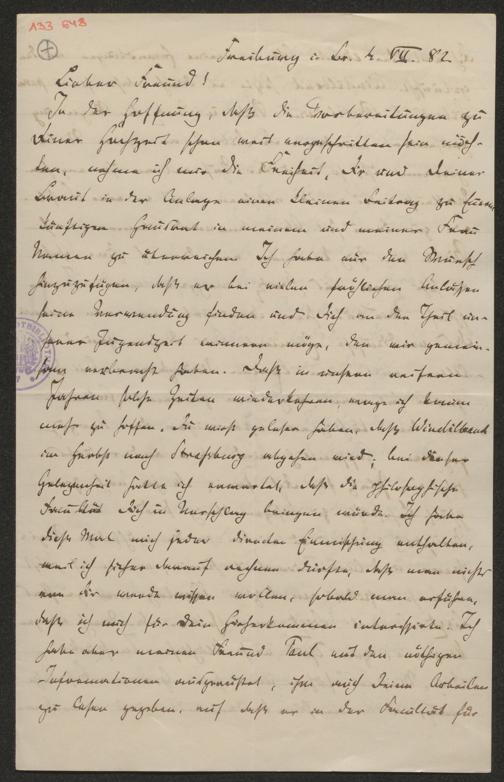 133 648
Freiburg i. Br. 4. VII. 82
Lieber Freund!
In der Hoffnung, daß die Vorbereitungen zu
Deiner Hochzeit schon weit vorgeschritten sein möch-
ten, nehme ich mir die Freiheit, Dir und Deiner
Braut in der Anlage einen kleinen Beitrag zu Eurem
künftigen Hausrat in meinem und meiner Frau
Namen zu überreichen. Ich habe nur den Wunsch
hinzuzufügen, daß er bei vielen fröhlichen Anlässen
seine Verwendung finden und Dich an den Theil un-
serer Jugendzeit erinnern möge, den wir gemein-
sam verbracht haben. Daß in unsern reifern
Jahren solche Zeiten wiederkehren, wage ich kaum
mehr zu hoffen. Du wirst gelesen haben, daß Windelband
im Herbst nach Straßburg abgehen wird; bei dieser
Gelegenheit hatte ich erwartet, daß die philosophische
Facultät Dich in Vorschlag bringen würde. Ich habe
dieß Mal mich jeder direkten Einmischung enthalten,
weil ich sicher darauf rechnen durfte, daß man nichts
von Dir würde wissen wollen, sobald man erführe,
daß ich mich für Dein Hierherkommen interessirte. Ich
habe aber meinen Freund Paul mit den nöthigen
Informationen ausgerüstet, ihm auch Deine Arbeiten
zu lesen gegeben, auf daß er in der Facultät für